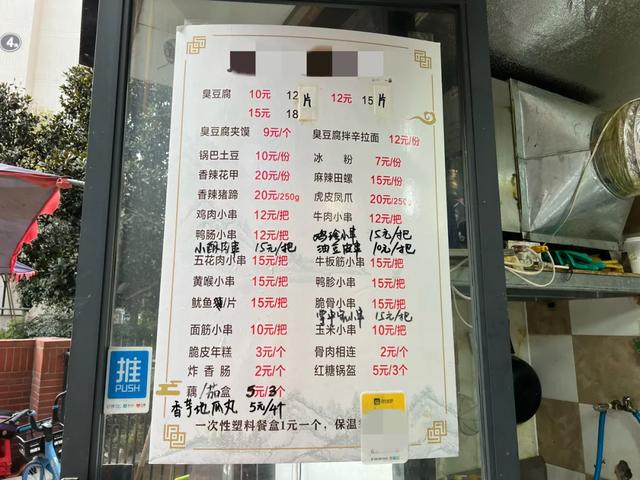 4
臭豆腐 10元 12片 12元 15片
15元 18
臭豆腐夹馍 9元/个 臭豆腐拌辛拉面 12元/份
锅巴土豆 10元/份 冰粉 7元/份
香辣花甲 20元/份 麻辣田螺 15元/份
香辣猪蹄 20元/250g 虎皮凤爪 20元/250g
鸡肉小串 12元/把 牛肉小串 12元/把
鸭肠小串 12元/把 鸡珍小串 15元/把
小酥肉串 15元/把 油豆皮串 10元/把
五花肉小串 15元/把 牛板筋小串 15元/把
黄喉小串 15元/把 鸭胗小串 15元/把
鱿鱼/片 15元/把 脆骨小串 15元/把
掌中宝小串 15元/把
面筋小串 10元/把 玉米小串 10元/把
脆皮年糕 3元/个 骨肉相连 2元/个
炸香肠 2元/个 红糖锅盔 5元/3个
藕/茄盒 5元/3个
香芋地瓜丸 5元/4个
一次性塑料餐盒1元一个，保温
推
PUSH